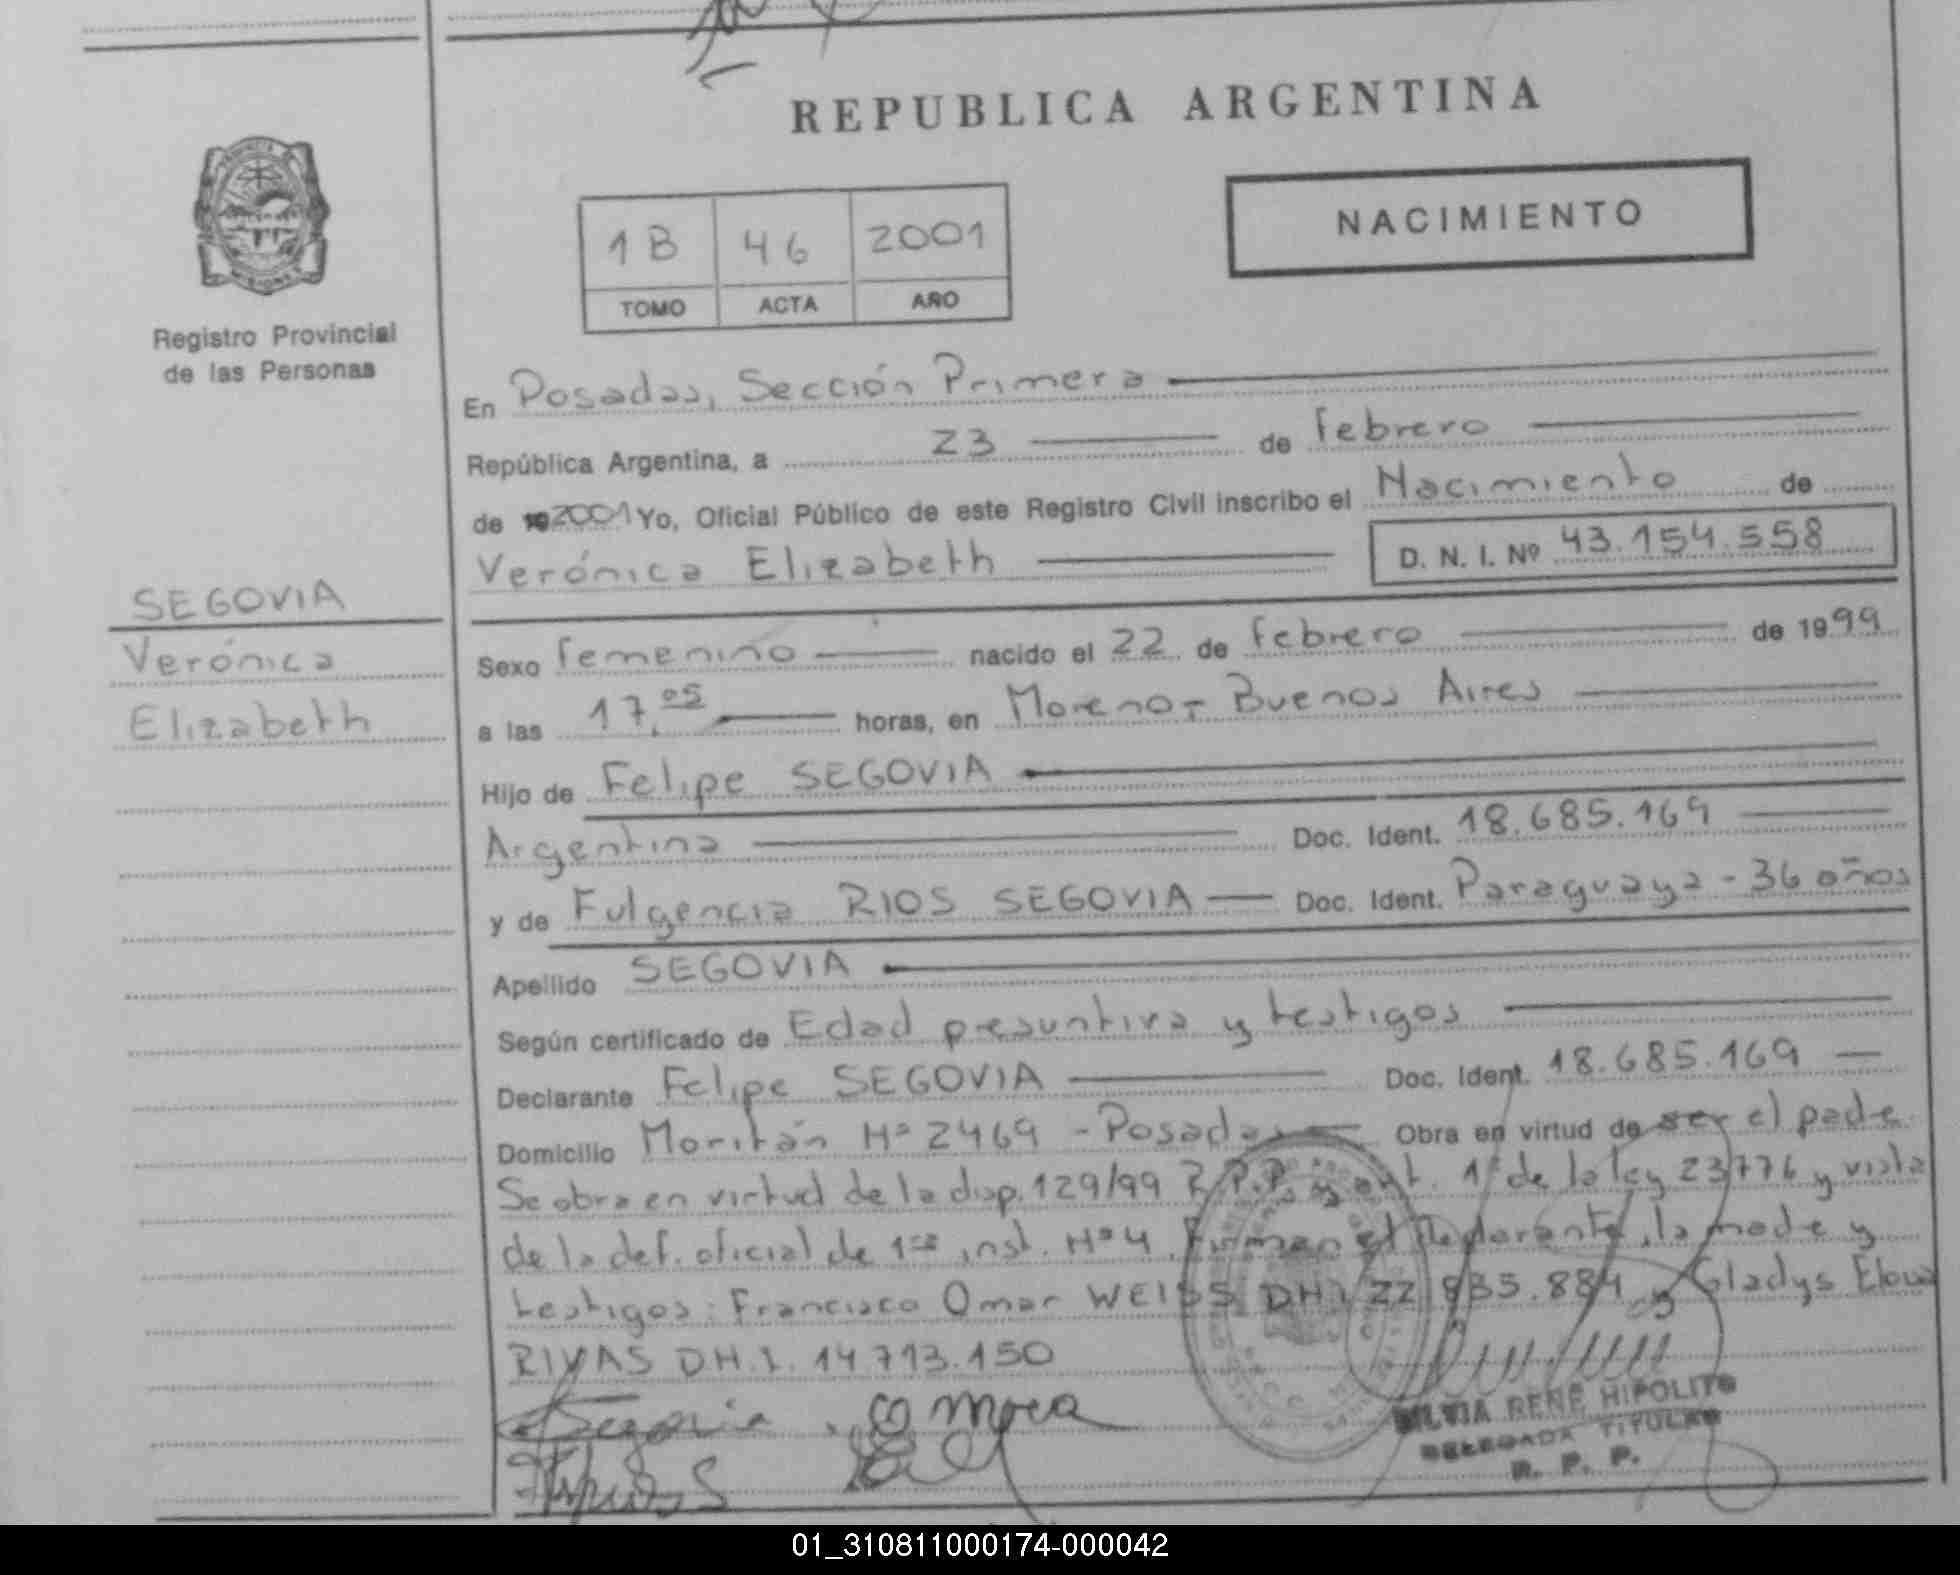 REPUBLICA ARGENTINA
NACIMIENTO
1B 46 2001
TOMO ACTA AÑO
Registro Provincial
de las Personas
En Posadas, Sección Primera
República Argentina, a 23 de febrero
de 192001 Yo, Oficial Público de este Registro Civil inscribo el Nacimiento de
Verónica Elizabeth D. N. I. Nº 43.154.558
SEGOVIA
Verónica
Elizabeth
Sexo femenino nacido el 22 de febrero de 1999
a las 17,05 horas, en Moreno - Buenos Aires
Hijo de Felipe SEGOVIA
Argentina Doc. Ident. 18.685.169
y de Fulgencia RIOS SEGOVIA Doc. Ident. Paraguaya - 36 años
Apellido SEGOVIA
Según certificado de Edad presuntiva y testigos
Declarante Felipe SEGOVIA Doc. Ident. 18.685.169
Domicilio Nº 2469 - Posadas Obra en virtud de ser el padre
Se obra en virtud de la disp. 129/99 R.P.P. y art. 1º de la ley 23776 y vista
de la def. oficial de 1ra inst. Nº 4. Firman el declarante, la madre y
testigos: Francisco Omar WEISS DNI 22.835.884 y Gladys
RIVAS D.N.I. 14.713.150
Segovia
SILVIA RENE HIPOLITO
DELEGADA TITULAR
R. P. P.
01_310811000174-000042